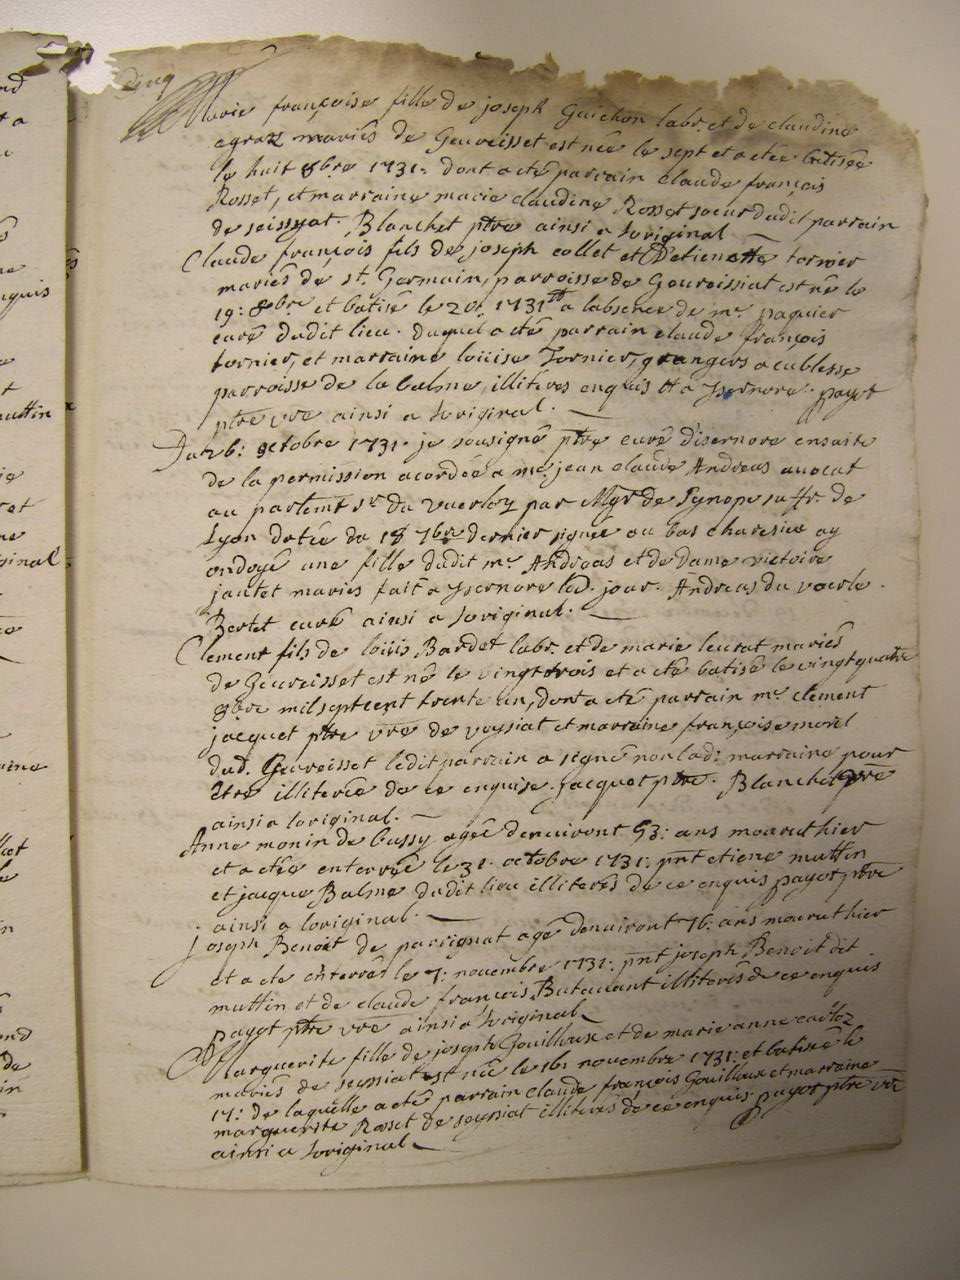 cinq
Marie françoise fille de joseph Guichon labr. et de claudine
agraz mariés de Geuvreisset est née le sept et a ete batisée
le huit 8bre 1731. dont a eté parrain claude françois
Rosset, et marraine marie claudine Rosset soeur dudit parrain
de seissyat. Blanchet ptre ainsi a loriginal
Claude françois fils de joseph collet et d'etienette tornier
mariés de st. Germain, parroisse de Gouvoissiat est né le
19: 8bre et batisé le 20. 1731 a labsence de mr. paquier
curé dudit lieu. Duquel a eté parrain claude françois
tornier, et marraine loüise Tornier, grangers a cublesse
parroisse de la balme, illitéres enquis et a Isernore. payot
ptre vre ainsi a loriginal.
Du 26: octobre 1731. je sousigné ptre curé d'isernore ensuite
de la permission acordée a me. jean claude Andreas avocat
au parlemt sr. du vuerloz par Mgr de Synope suffr. de
Lyon datée du 18 7bre dernier signée au bas charesieu ay
ondoyé une fille dudit mr. Andreas et de Dame victoire
jantet mariés fait a Isernore led. jour. Andreas du voerle.
Bertet curé ainsi a loriginal.
Clement fils de loüis Bardet labr. et de marie leurat mariés
de Geuvreisset est né le vingt trois et a eté batisé le vingt quatre
8bre mil sept cent trente un, dont a eté parrain mr. clement
jacquet ptre vre de voysiat et marraine françoise morel
dud. Geuvreisset ledit parrain a signé non lad: marraine pour
être illiterée de ce enquise. jacquet ptre. Blanchet ptre
ainsi a loriginal.
Anne monin de bussy agée denuiront 53: ans mourut hier
et a eté enterrée le 31. octobre 1731: pnt etiene muttin
et jacque Balme dudit lieu illiterés de ce enquis payot ptre
ainsi a loriginal.
joseph Benoit de parrignat agé denuiront 76: ans mourut hier
et a eté enterré le 7: novembre 1731: pnt joseph Benoit dit
muttin et de claude françois Butavant illiterés de ce enquis
payot ptre vre ainsi a loriginal
Marguerite fille de joseph Gouilloux et de marie anne cailloz
mariés de seyssiat est née le 16: novembre 1731: et batisée le
17: de laquelle a eté parrain claude françois Gouilloux et marraine
marguerite Rosset de seyssiat illiterés de ce enquis. payot ptre vre
ainsi a loriginal